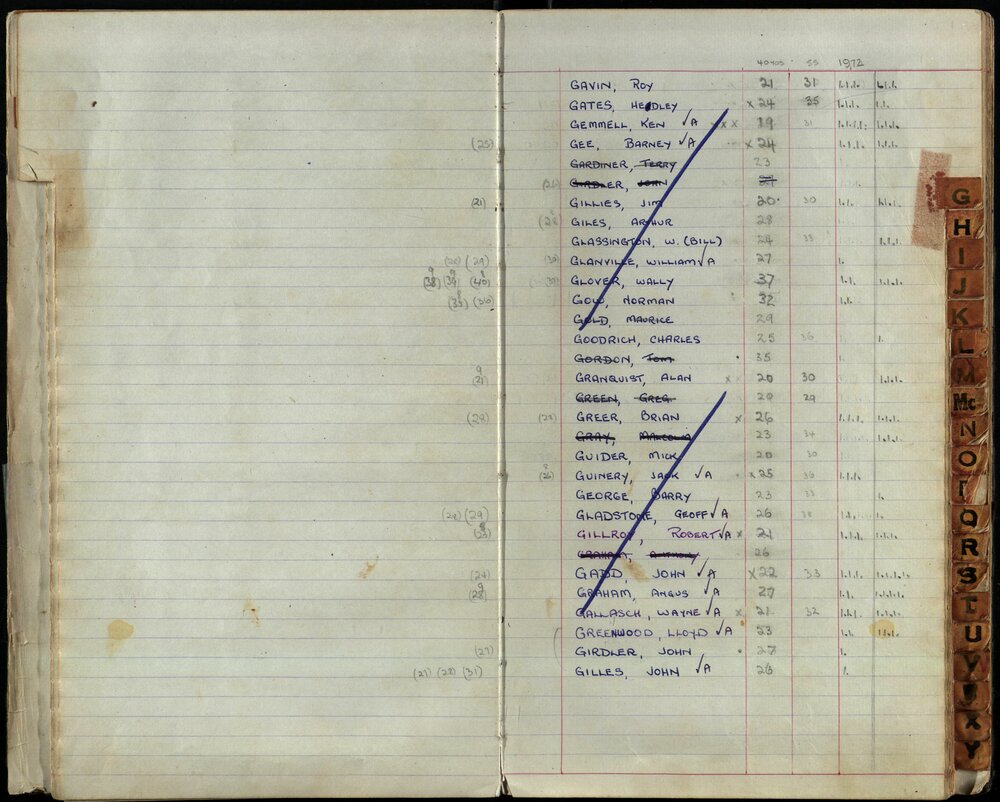 40YDS SS 1972
GAVIN, ROY 21 31
GATES, HEDLEY x 24 35
GEMMELL, KEN √A xxx 19 31
(25) GEE, BARNEY √A x 24
GARDINER, TERRY 23
GIRDLER, JOHN
(21) GILLIES, JIM 20 30
GILES, ARTHUR 28
GLASSINGTON, W. (BILL) 24 33
(28) (29) (30) GLANVILLE, WILLIAM √A 27
(38) (39) (40) GLOVER, WALLY 37
(35) (36) GOW, NORMAN 32
GOLD, MAURICE 29
GOODRICH, CHARLES 25 36
GORDON, TOM 35
(21) GRANQUIST, ALAN x x 20 30
GREEN, GREG 20 29
(28) (28) GREER, BRIAN x 26
GRAY, MALCOLM 23 34
GUIDER, MICK 20 30
(26) GUINERY, JACK √A x 25 36
GEORGE, BARRY 23 33
(28) (29) GLADSTONE, GEOFF √A 26 38
(23) GILLROY, ROBERT √A x 21
GRAHAM, ANTHONY 26
(24) GADD, JOHN √A x 22 33
(28) GRAHAM, ANGUS √A 27
GALLASCH, WAYNE √A x 21 32
GREENWOOD, LLOYD √A 23
(27) GIRDLER, JOHN 27
(27) (28) (31) GILLES, JOHN √A 26
G
H
I
J
K
L
M
Mc
N
O
P
Q
R
S
T
U
V
W
X
Y